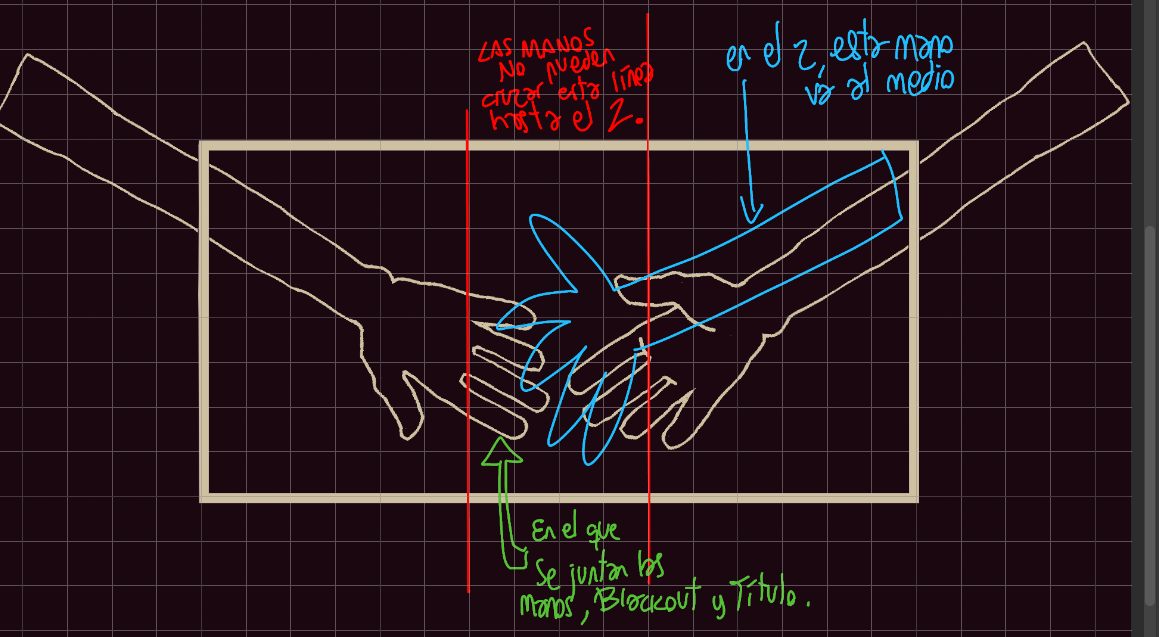 LAS MANOS
No pueden
cruzar esta línea
hasta el 2.
en el 2, esta mano
va al medio
En el que
Se juntan las
manos, Blackout y Título.